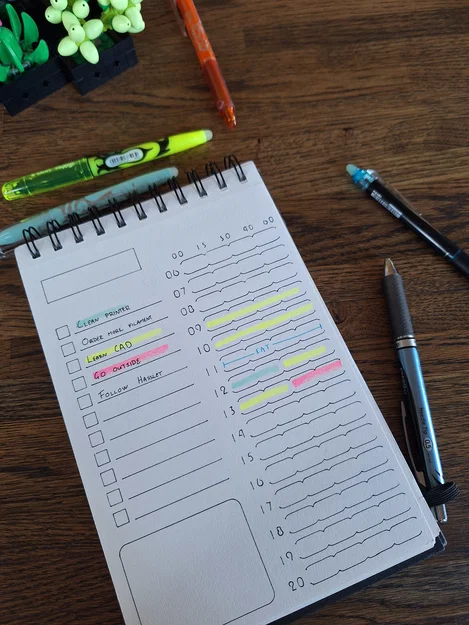 CLEAN PRINTER
ORDER MORE FILAMENT
LEARN CAD
GO OUTSIDE
FOLLOW HASKET
00 15 30 40 60
06
07
08
09
10
11 EAT
12
13
14
15
16
17
18
19
20